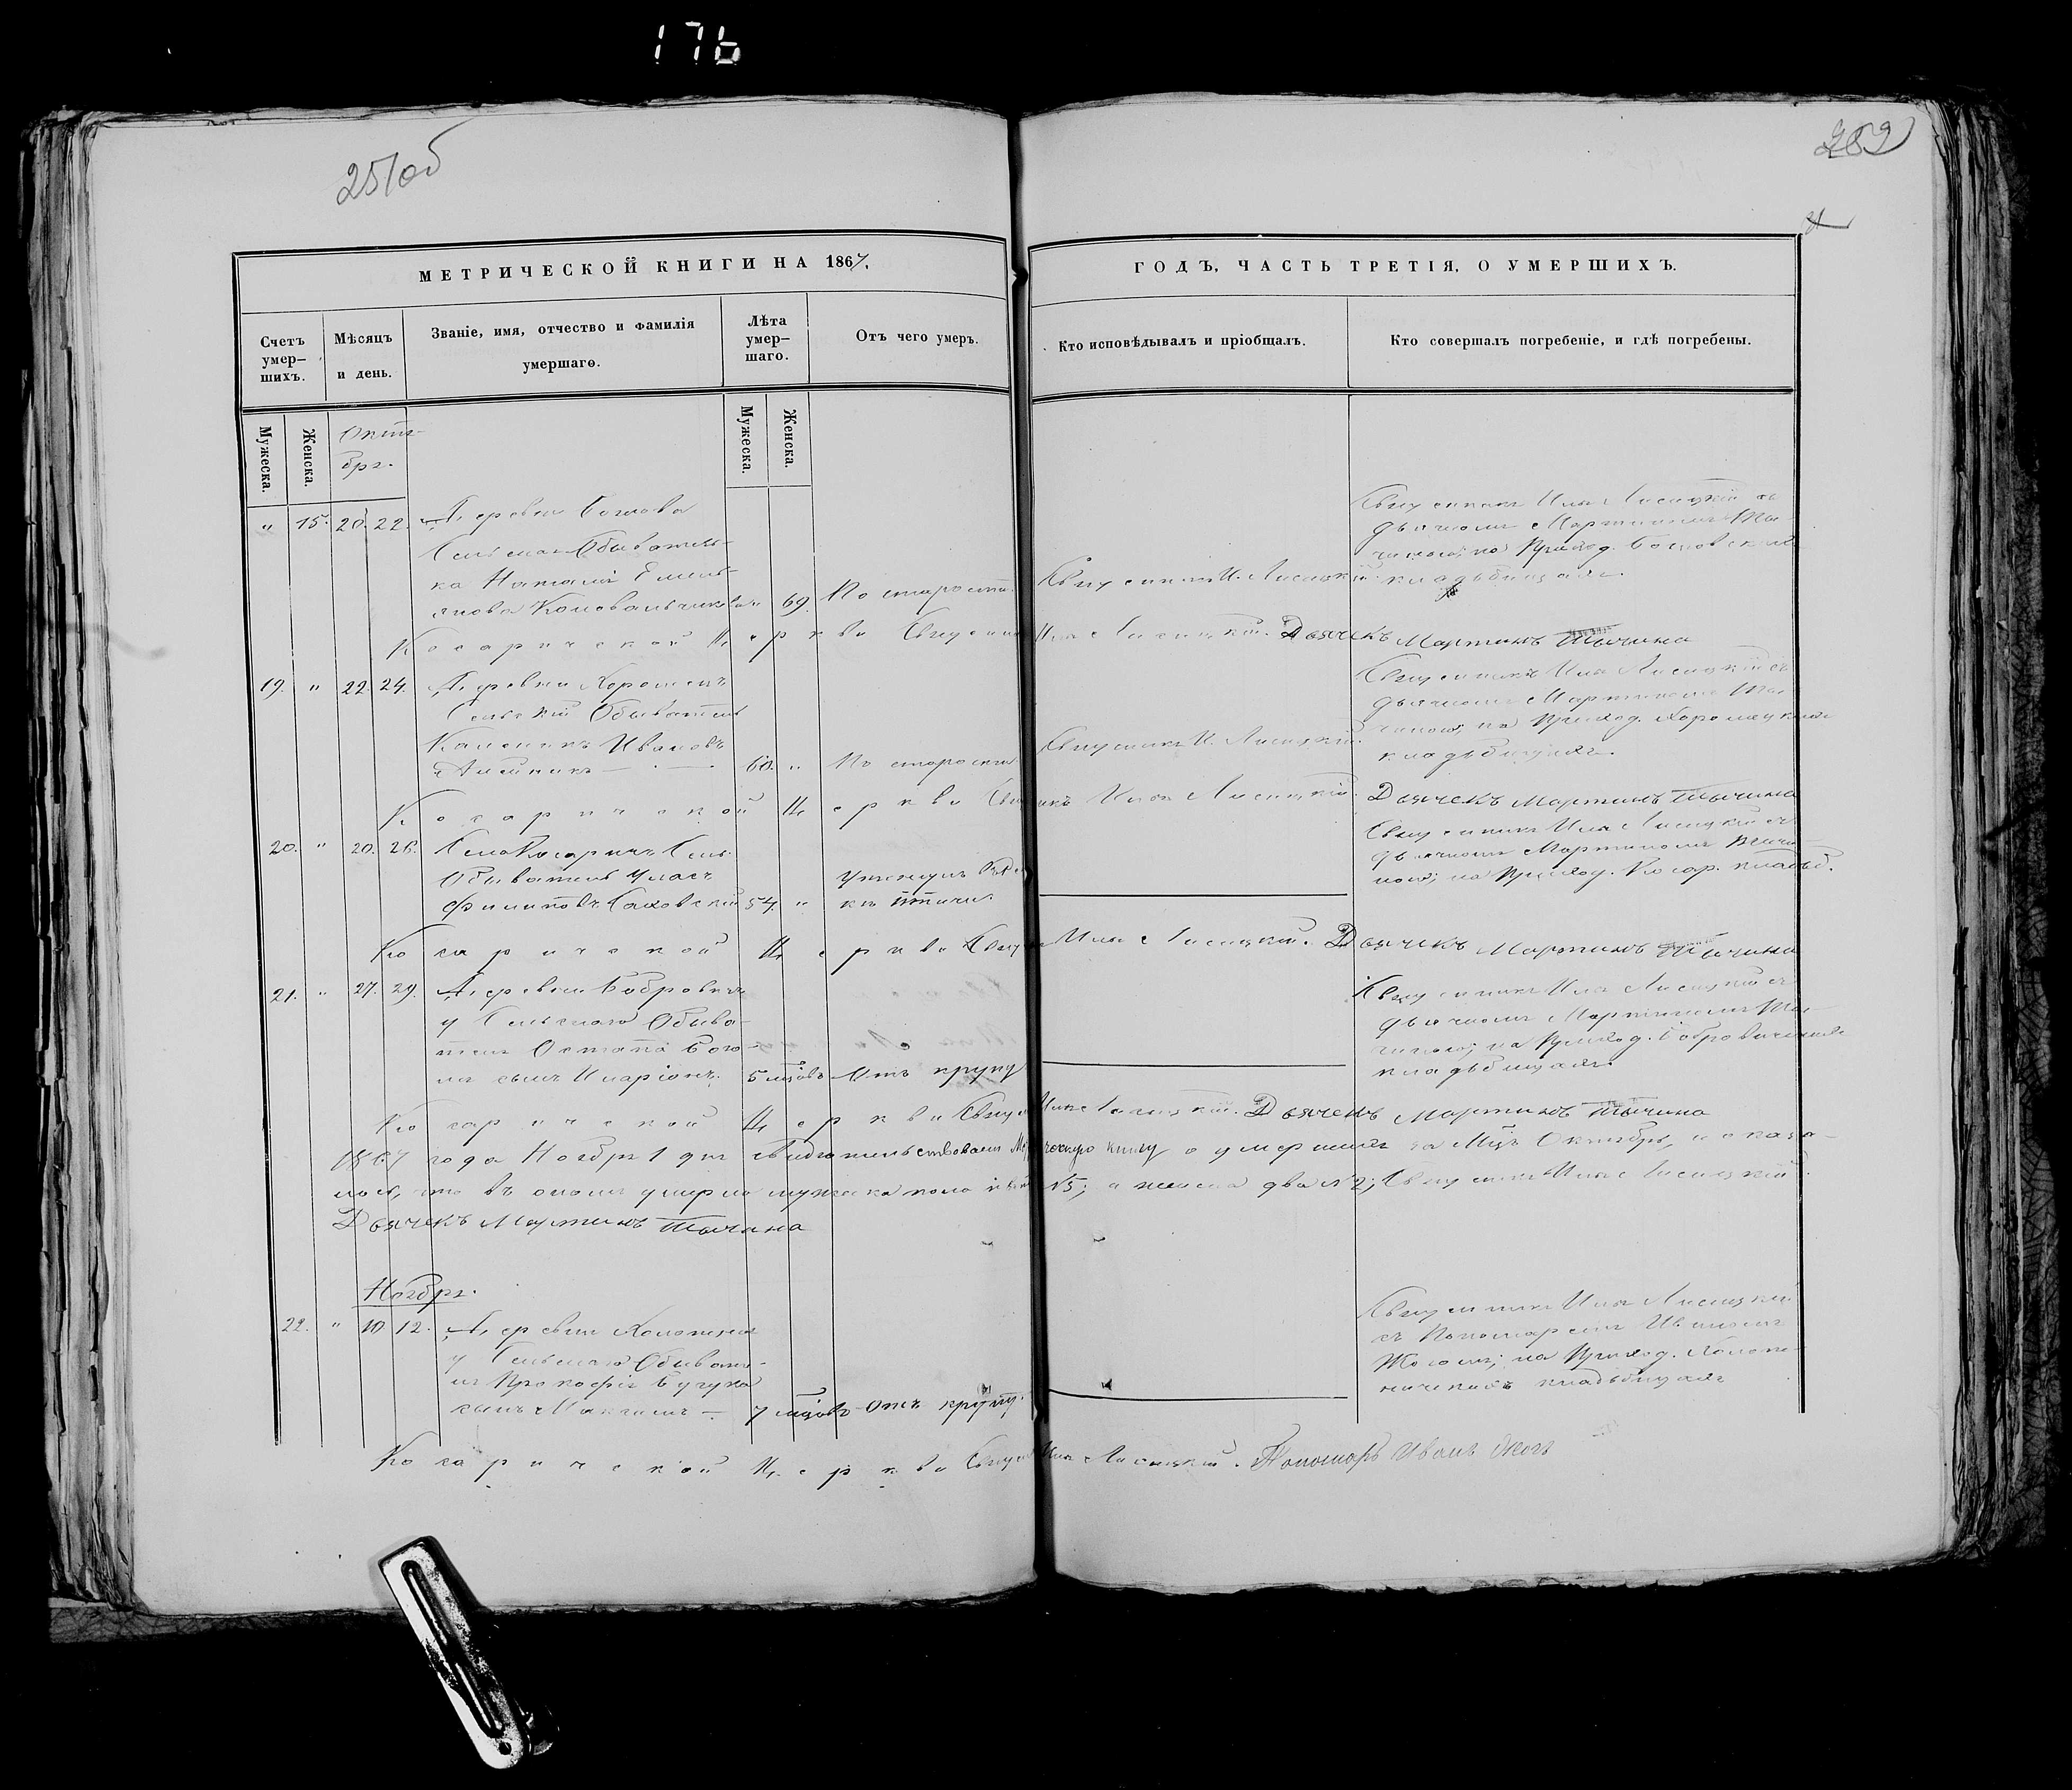 176
251об
252
МЕТРИЧЕСКОЙ КНИГИ НА 1867.
ГОДЪ, ЧАСТЬ ТРЕТІЯ, О УМЕРШИХЪ.
Счетъ умер–шихъ.
Мѣсяцъ и день.
Званіе, имя, отчество и фамилія умершаго.
Лѣта умер–шаго.
Отъ чего умеръ.
Кто исповѣдывалъ и пріобщалъ.
Кто совершалъ погребеніе, и гдѣ погребены.
Мужеска.
Женска.
Мужеска.
Женска.
Октя-
бря.
" 15. 20. 22. Деревни
Сельская Обыватель-
ка Наталія Емель-
янова " 69. По старости
Священникъ И. Лисицкій.
Священникъ Илья Лисицкій съ
дьячкомъ Мартиномъ Ты-
чиною; на Приход.
кладбищахъ.
Косаричской Церкви Священникъ Илья Лисицкій. Дьячекъ Мартинъ Тычина
19. " 22. 24. Деревни Хоромецъ
Сельскій Обыватель
Иванов
60. " По старости
Священникъ И. Лисицкій.
Священникъ Илья Лисицкій съ
дьячкомъ Мартиномъ Ты-
чиною; на Приход. Хоромецкихъ
кладбищахъ.
Косаричской Церкви Священникъ Илья Лисицкій. Дьячекъ Мартинъ Тычина
20. " 20. 26. Села Косаричъ Сель.
Обыватель Улас
Филиповъ Саковскій 54. "
Священникъ Илья Лисицкій съ
дьячкомъ Мартиномъ Тычи-
ною; на Приход. Косар. кладб.
Косаричской Церкви Священникъ Илья Лисицкій. Дьячекъ Мартинъ Тычина
21. " 27. 29. Деревни Бобровичъ
у Сельскаго Обыва-
теля Остапа
сынъ Иларіонъ. 5 мцовъ Отъ крупу
Священникъ Илья Лисицкій съ
дьячкомъ Мартиномъ Ты-
чиною; на Приход. Бобровичскихъ
кладбищахъ.
Косаричской Церкви Священникъ Илья Лисицкій. Дьячекъ Мартинъ Тычина
1867 года Ноября 1 дня свидѣтельствовали Метрическую книгу о умершихъ за Мцъ Октябрь, и оказа-
лось, что въ ономъ умерло мужеска пола пять №5; а женска два №2; Священникъ Илья Лисицкій.
Дьячекъ Мартинъ Тычина
Ноября.
22. " 10. 12. Деревни
у Сельскаго Обывате-
ля Прокофія
сынъ Максимъ – 7 мцовъ Отъ крупу.
Священникъ Илья Лисицкій
съ Пономаремъ Иваномъ
Жогомъ; на Приход.
кладбищахъ
Косаричской Церкви Священникъ Илья Лисицкій. Пономарь Иванъ Жогъ